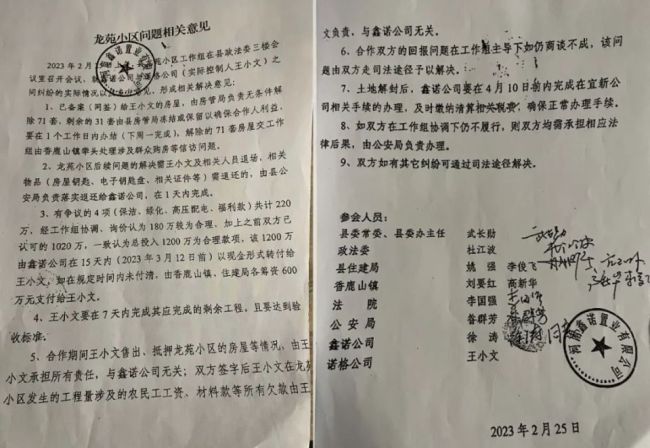 龙苑小区问题相关意见
2023 年 2 月 苑小区工作组在县政法委三楼会
议室召开会议, 公司 诺格公司（实际控制人王小文）之
间纠纷的实际情况 意见，形成相关解决意见：
1、已备案（网签）给王小文的房屋，由房管局负责无条件解
除 71 套，剩余的 31 套由县房管局冻结或保留以确保合作人利益，
要在 1 个工作日内办结（下周一完成），解除的 71 套房屋交工作
组由香鹿山镇牵头处理涉及群众购房等信访问题。
2、龙苑小区后续问题的解决需王小文及相关人员退场，相关
物品（房屋钥匙、电子钥匙盘、相关证件等）需退还的，由县公
安局负责落实退还给鑫诺公司，在 1 天内完成。
3、有争议的 4 项（保洁、绿化、高压配电、福利款）共计 220
万，经工作组协调、询价认为 180 万较为合理，加上之前双方已
认可的 1020 万，一致认为总投入 1200 万为合理款项，该 1200 万
由鑫诺公司在 15 天内（2023 年 3 月 12 日前）以现金形式转付给
王小文，如在规定时间内未付清，由香鹿山镇、住建局各筹资 600
万元支付给王小文。
4、王小文要在 7 天内完成其应完成的剩余工程，且要达到验
收标准。
5、合作期间王小文售出、抵押龙苑小区的房屋等情况，由王
小文承担所有责任，与鑫诺公司无关；双方签字后王小文在龙苑
小区发生的工程量涉及的农民工工资、材料款等所有欠款由王
文负责，与鑫诺公司无关。
6、合作双方的回报问题在工作组主导下如仍商谈不成，该问
题由双方走司法途径予以解决。
7、土地解封后，鑫诺公司要在 4 月 10 日前内完成在宜新公
司相关手续的办理，及时缴纳清算相关税费，确保正常办理手续。
8、如双方在工作组协调下仍不履行，则双方均需承担相应法
律后果，由公安局负责办理。
9、双方如有其它纠纷可通过司法途径解决。
参会人员：
县委常委、县委办主任 武长勋
政法委 杜江波
县住建局 姚强 李俊飞
香鹿山镇 刘要红 高新华
法院 李国强
公安局 昝群芳
鑫诺公司 徐涛
诺格公司 王小文
河南鑫诺置业有限公司
2023 年 2 月 25 日